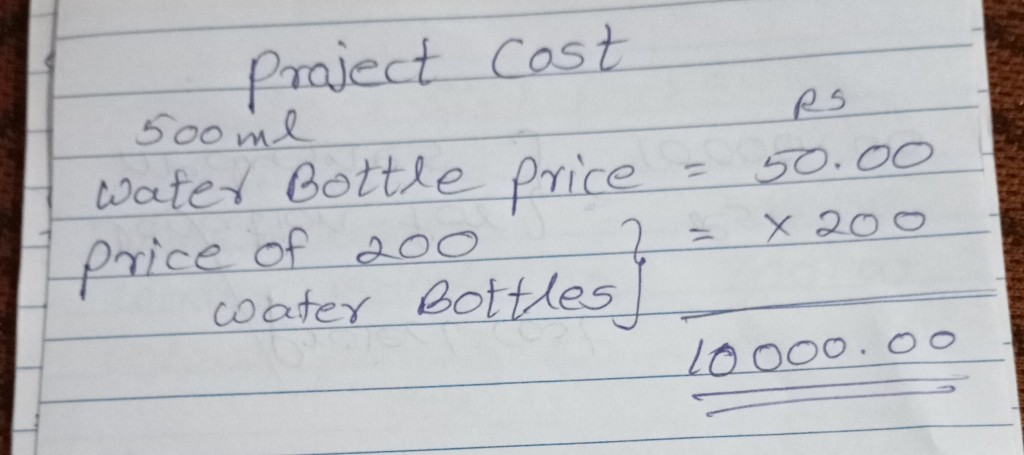 Project Cost
500ml Rs
Water Bottle Price = 50.00
Price of 200 } = x 200
Water Bottles
10000.00